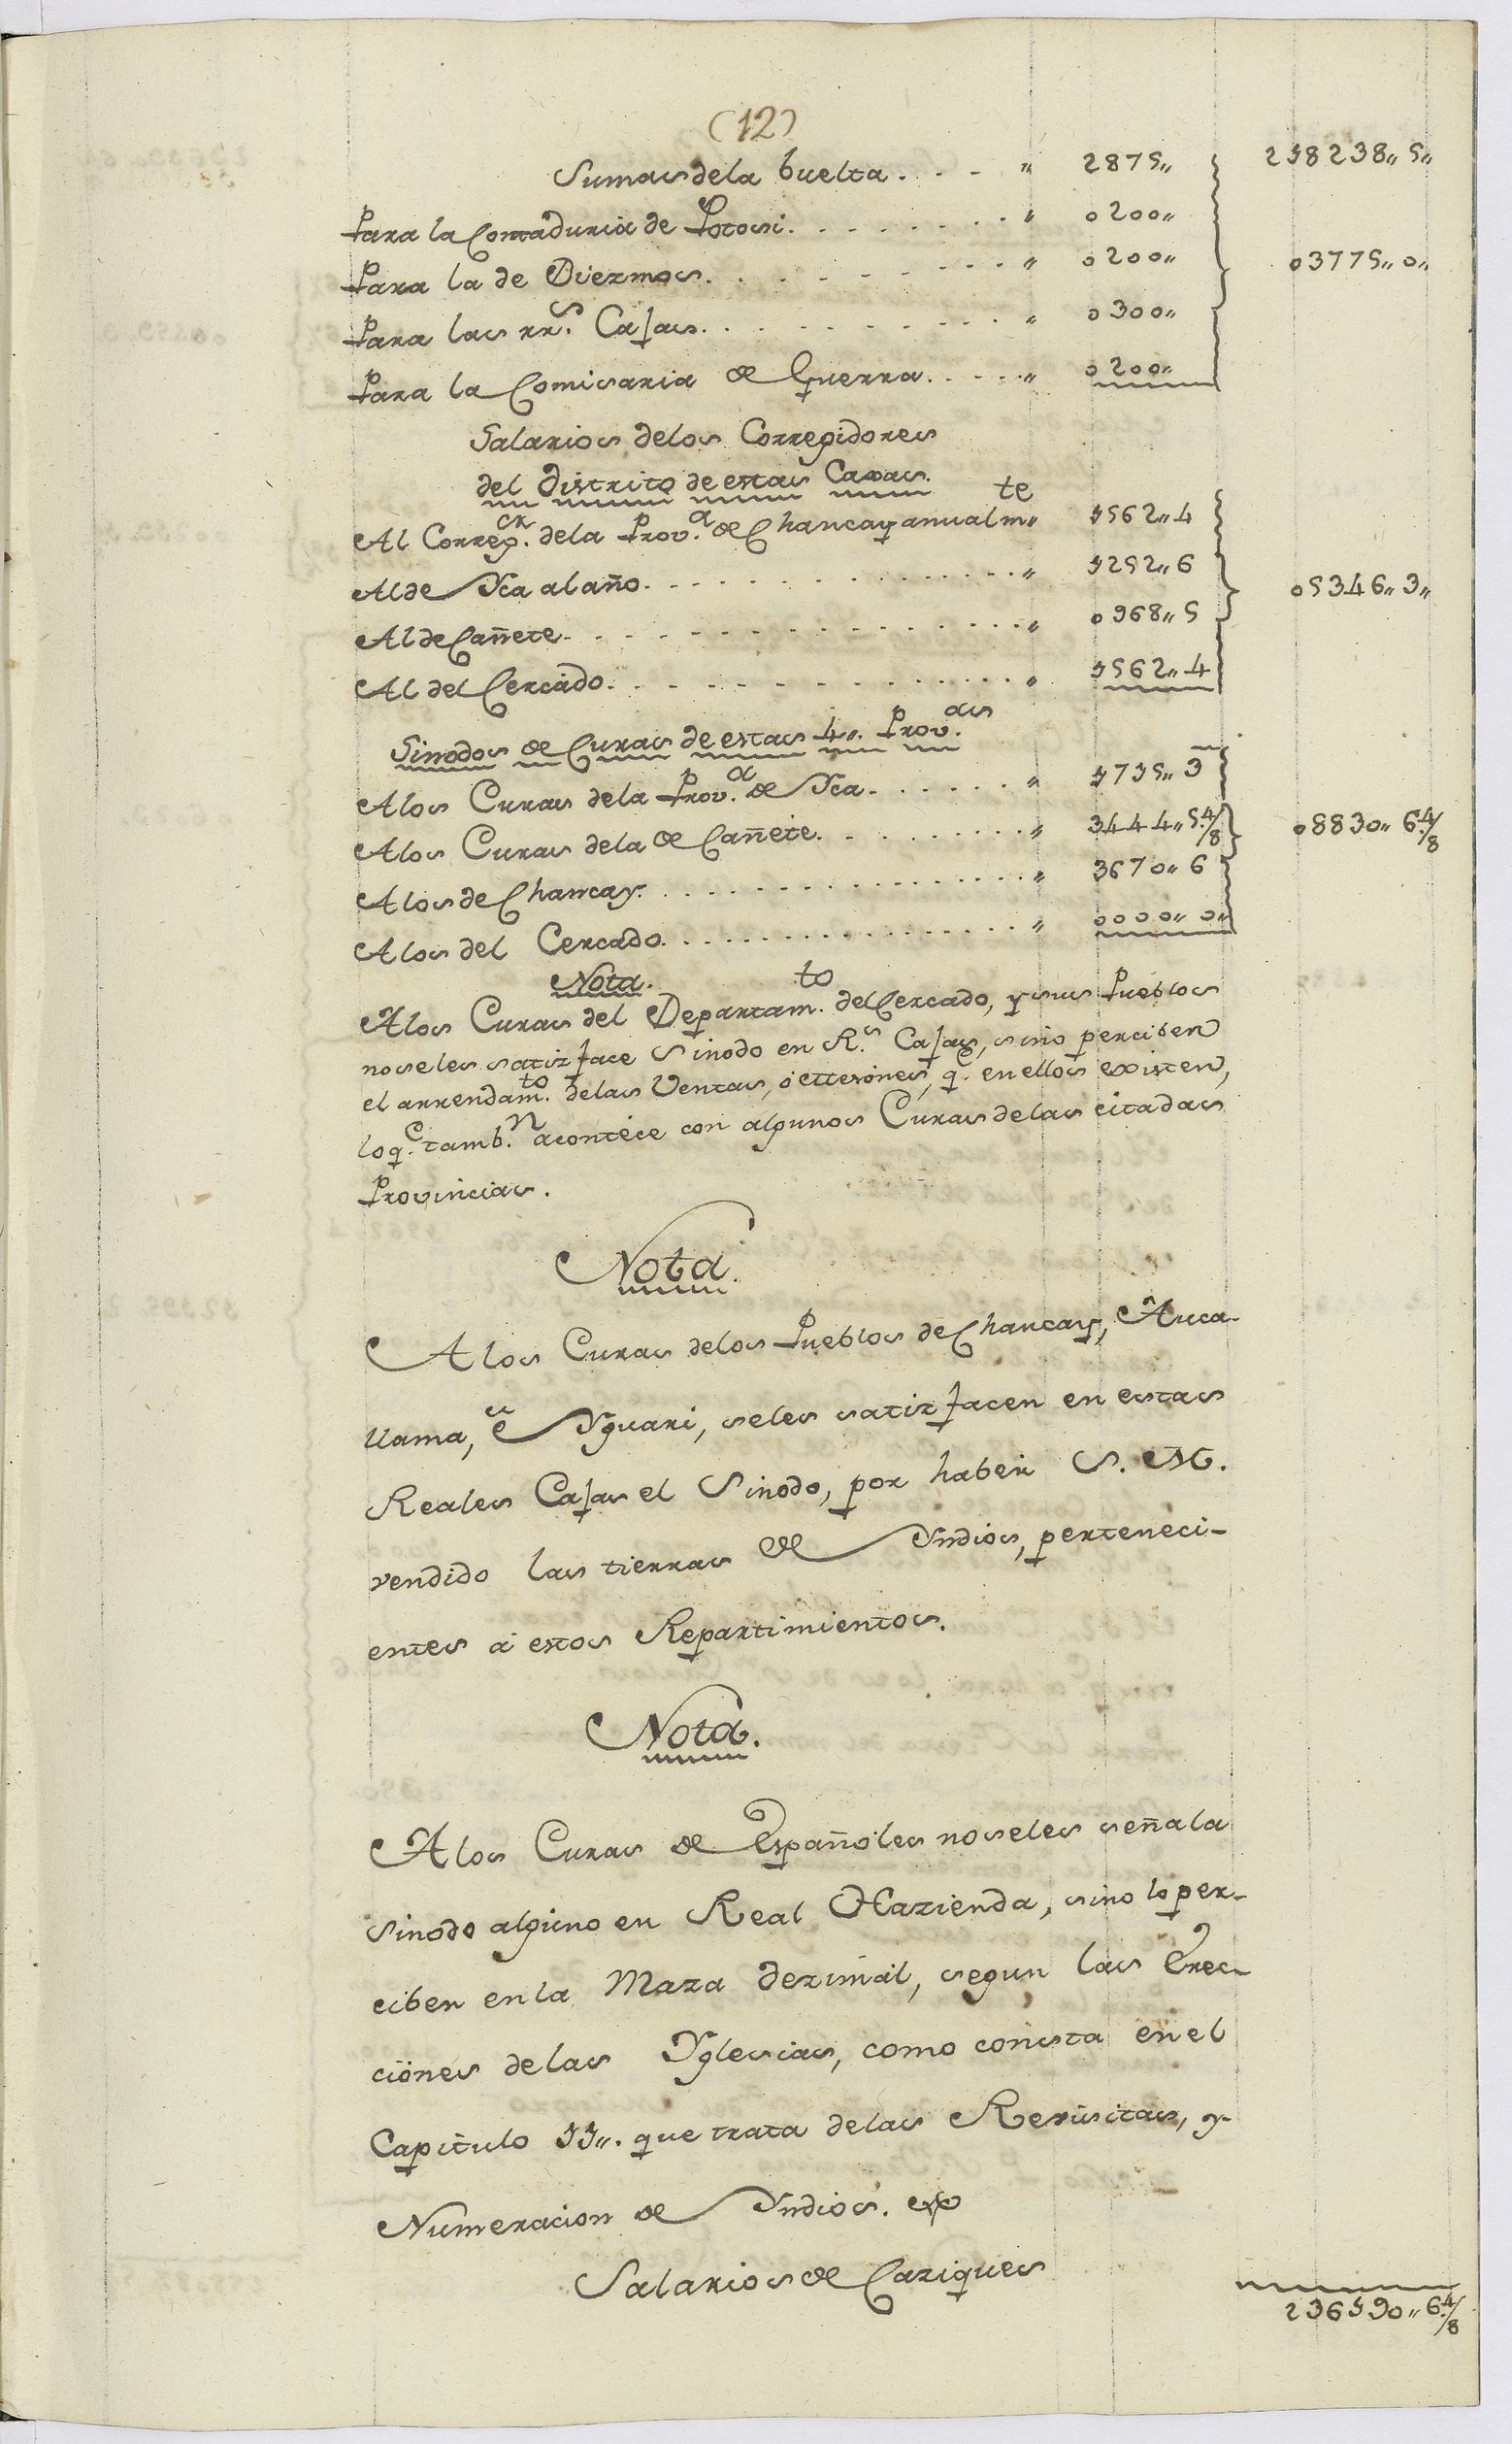 (12)
Sumas de la buelta. . . - " 2875" 218238" 5"
Para la Contaduria de Potosi. . . . . . . . " 0200"
Para la de Diezmos. . . . . . . . . . " 0200" 03775" 0"
Para las rr.s Cajas. . . . . . . . . . " 0300"
Para la Comisaria de Guerra. . . . . " 0200"
Salarios de los Corregidores
del distrito de estas Caxas.
Al Correg.or de la Prov.a de Chancay anualm.te " 1562" 4
Al de Yca al año. . . . . . . . . . . . . . " 1252" 6 05346" 3"
Al de Cañete. . . . . . . . . . . . . . . . " 0968" 5
Al del Cercado. . . . . . . . . . . . . . . " 1562" 4
Sinodos de Curas de estas 4". Prov.as
A los Curas de la Prov.a de Yca. . . . . . " 1715" 3
A los Curas de la de Cañete. . . . . . . . . " 3444" 5.4/8 08830" 6.4/8
A los de Chancay. . . . . . . . . . . . . . . . " 3670" 6
A los del Cercado. . . . . . . . . . . . . . . . " 0000" 0"
Nota.
A los Curas del Departam.to del Cercado, y sus Pueblos
no se les satisface Sinodo en R.s Cajas, sino perciben
el arrendam.to de las Ventas, ó Mesones, q.e en ellos existen,
lo q.e tamb.n acontece con algunos Curas de las citadas
Provincias.
Nota.
A los Curas de los Pueblos de Chancay, Auca-
llama, è Yguari, se les satisfacen en estas
Reales Cajas el Sinodo, por haber S. M.
vendido las tierras de Yndios, perteneci-
entes à estos Repartimientos.
Nota.
A los Curas de Españoles no se les señala
Sinodo alguno en Real Hazienda, sino lo per-
ciben en la Maza dezimal, segun las Erec-
ciones de las Yglesias, como consta en el
Capitulo 11". que trata de las Revisitas, y
Numeracion de Yndios.
Salarios de Caziques
236190" 6.4/8